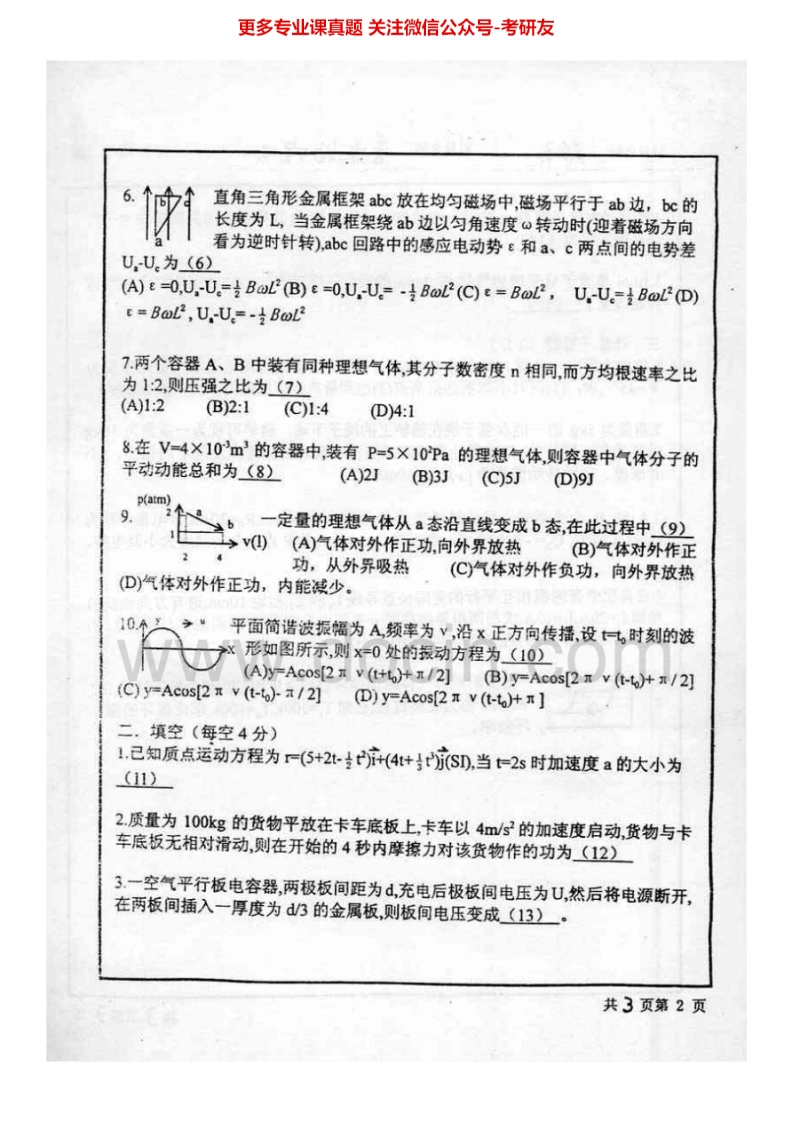 更多专业课真题 关注微信公众号-考研友
6.
b
c
a
直角三角形金属框架 abc 放在均匀磁场中,磁场平行于 ab 边，bc 的
长度为 L, 当金属框架绕 ab 边以匀角速度 ω 转动时(迎着磁场方向
看为逆时针转),abc 回路中的感应电动势 ε 和 a、c 两点间的电势差
Uₐ-U꜀为 (6)
(A) ε =0,Uₐ-U꜀=½ BωL² (B) ε =0,Uₐ-U꜀= -½ BωL² (C) ε = BωL²， Uₐ-U꜀=½ BωL² (D)
ε = BωL², Uₐ-U꜀= -½ BωL²
7.两个容器 A、B 中装有同种理想气体,其分子数密度 n 相同,而方均根速率之比
为 1:2,则压强之比为 (7)
(A)1:2 (B)2:1 (C)1:4 (D)4:1
8.在 V=4×10⁻³m³ 的容器中,装有 P=5×10²Pa 的理想气体,则容器中气体分子的
平动动能总和为 (8) (A)2J (B)3J (C)5J (D)9J
p(atm)
2
a
b
1
v(l)
2 4
9. 一定量的理想气体从 a 态沿直线变成 b 态,在此过程中 (9)
(A)气体对外作正功,向外界放热 (B)气体对外作正
功，从外界吸热 (C)气体对外作负功，向外界放热
(D)气体对外作正功，内能减少。
10.
y
u
x
平面简谐波振幅为 A,频率为 ν,沿 x 正方向传播,设 t=t₀ 时刻的波
形如图所示,则 x=0 处的振动方程为 (10)
(A)y=Acos[2π ν (t+t₀)+π/2] (B) y=Acos[2π ν (t-t₀)+π/2]
(C) y=Acos[2π ν (t-t₀)-π/2] (D) y=Acos[2π ν (t-t₀)+π]
www.docin.com
二．填空（每空 4 分）
1.已知质点运动方程为 r=(5+2t-½t²)i+(4t+⅓t³)j(SI),当 t=2s 时加速度 a 的大小为
(11)
2.质量为 100kg 的货物平放在卡车底板上,卡车以 4m/s² 的加速度启动,货物与卡
车底板无相对滑动,则在开始的 4 秒内摩擦力对该货物作的功为 (12)
3.一空气平行板电容器,两极板间距为 d,充电后极板间电压为 U,然后将电源断开,
在两板间插入一厚度为 d/3 的金属板,则板间电压变成 (13) 。
共 3 页第 2 页